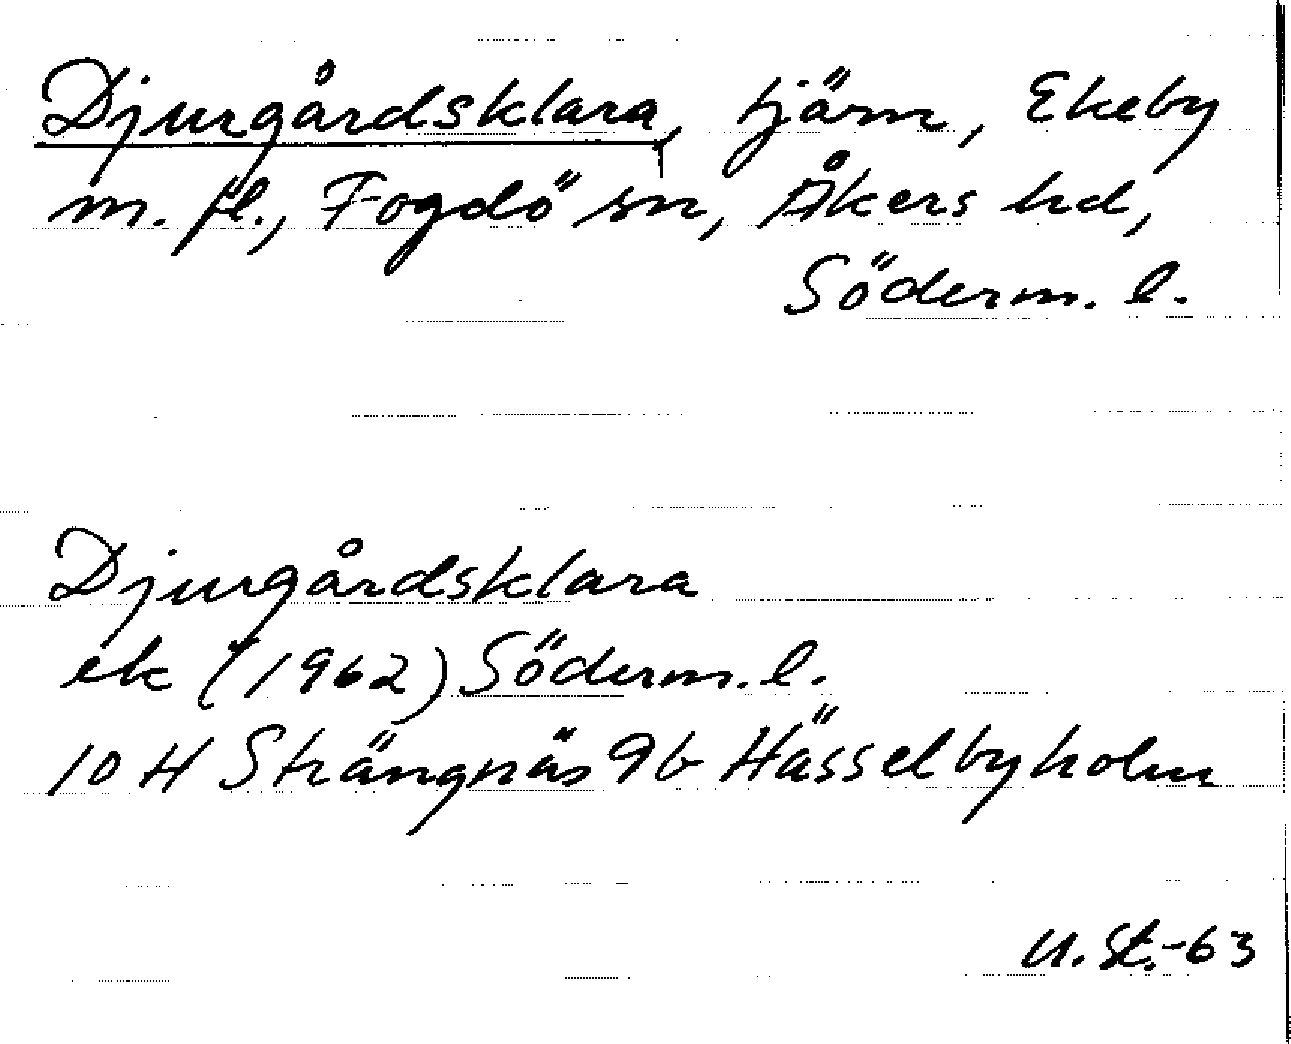 Djurgårdsklara, tjärn, Ekeby
m. fl., Fogdö sn, Åkers hd,
Söderm. l.
Djurgårdsklara
ek (1962) Söderm. l.
10 H Strängnäs 9b Hässelbyholm
U. St.-63